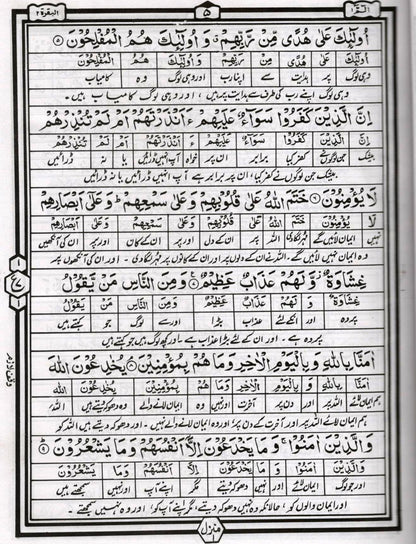 الٓمّٓ ١ ٥ البقرة ٢
أُولٰٓئِكَ عَلٰى هُدًى مِّنْ رَّبِّهِمْ ق وَ أُولٰٓئِكَ هُمُ الْمُفْلِحُوْنَ ٥
أُولٰٓئِكَ عَلٰى هُدًى مِّنْ رَّبِّهِمْ وَ أُولٰٓئِكَ هُمُ الْمُفْلِحُوْنَ
وہی لوگ پر ہدایت سے اپنا رب اور وہی لوگ وہ کامیاب
وہی لوگ اپنے رب کی طرف سے ہدایت پر ہیں، اور وہی لوگ کامیاب ہیں۔
إِنَّ الَّذِيْنَ كَفَرُوْا سَوَآءٌ عَلَيْهِمْ ءَاَنْذَرْتَهُمْ اَمْ لَمْ تُنْذِرْهُمْ
إِنَّ الَّذِيْنَ كَفَرُوْا سَوَآءٌ عَلَيْهِمْ ءَاَنْذَرْتَهُمْ اَمْ لَمْ تُنْذِرْهُمْ
بیشک جن لوگوں نے کفر کیا برابر ان پر خواہ آپ انہیں ڈرائیں یا نہ ڈرائیں
بیشک جن لوگوں نے کفر کیا، ان پر برابر ہے آپ انہیں ڈرائیں یا نہ ڈرائیں
لَا يُؤْمِنُوْنَ ٦ خَتَمَ اللهُ عَلٰى قُلُوْبِهِمْ وَ عَلٰى سَمْعِهِمْ ط وَ عَلٰٓى اَبْصَارِهِمْ
لَا يُؤْمِنُوْنَ خَتَمَ اللهُ عَلٰى قُلُوْبِهِمْ وَ عَلٰى سَمْعِهِمْ وَ عَلٰٓى اَبْصَارِهِمْ
نہیں ایمان لائیں گے مہر لگا دی اللہ پر ان کے دل اور پر ان کے کان اور پر ان کی آنکھیں
وہ ایمان نہیں لائیں گے۔ اللہ نے ان کے دلوں پر اور ان کے کانوں پر مہر لگا دی۔ اور ان کی آنکھوں پر
غِشَاوَةٌ وَّ لَهُمْ عَذَابٌ عَظِيْمٌ ٧ وَ مِنَ النَّاسِ مَنْ يَّقُوْلُ
غِشَاوَةٌ وَّ لَهُمْ عَذَابٌ عَظِيْمٌ وَ مِنَ النَّاسِ مَنْ يَّقُوْلُ
پردہ اور ان کے لئے عذاب بڑا اور سے لوگ جو کہتے ہیں
پردہ ہے۔ اور ان کے لئے بڑا عذاب ہے۔ اور کچھ لوگ ہیں جو کہتے ہیں
اٰمَنَّا بِاللهِ وَ بِالْيَوْمِ الْاٰخِرِ وَمَا هُمْ بِمُؤْمِنِيْنَ ٨ يُخٰدِعُوْنَ اللهَ
اٰمَنَّا بِاللهِ وَ بِالْيَوْمِ الْاٰخِرِ وَمَا هُمْ بِمُؤْمِنِيْنَ يُخٰدِعُوْنَ اللهَ
ہم ایمان لائے اللہ پر اور دن پر آخرت اور نہیں وہ ایمان لانے والے وہ دھوکہ دیتے ہیں اللہ
ہم ایمان لائے اللہ پر اور آخرت کے دن پر، اور وہ ایمان لانے والے نہیں۔ اور دھوکہ دیتے ہیں اللہ کو
وَ الَّذِيْنَ اٰمَنُوْا ج وَ مَا يَخْدَعُوْنَ اِلَّآ اَنْفُسَهُمْ وَ مَا يَشْعُرُوْنَ ٩
وَ الَّذِيْنَ اٰمَنُوْا وَ مَا يَخْدَعُوْنَ اِلَّآ اَنْفُسَهُمْ وَ مَا يَشْعُرُوْنَ
اور جو لوگ ایمان لائے اور نہیں دھوکہ دیتے مگر اپنے آپ اور نہیں سمجھتے ہیں
اور ایمان والوں کو، حالانکہ وہ نہیں دھوکہ دیتے، مگر اپنے آپ کو، اور وہ نہیں سمجھتے۔
وقف لازم
منزل ١